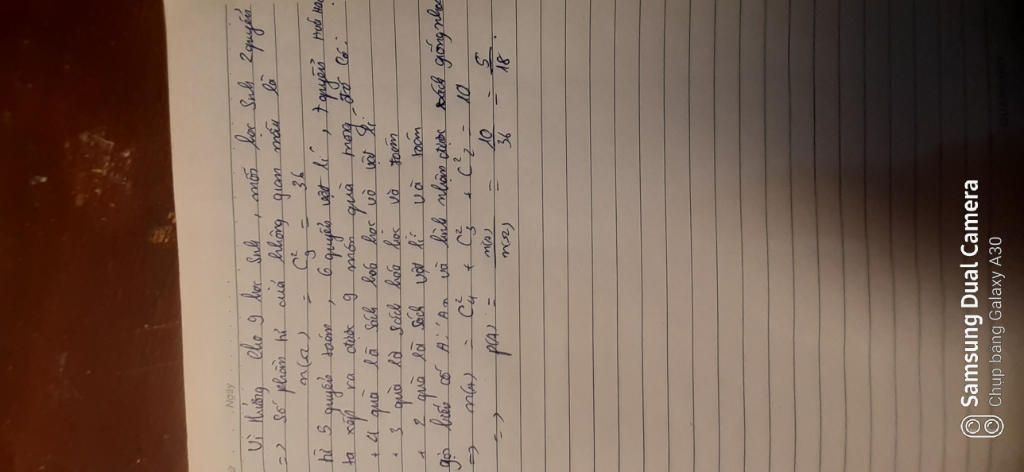 Ngày
Vì thưởng cho 9 học sinh, mỗi học sinh 2 quyển
=> Số phần tử của không gian mẫu là
n(Ω) = C²₉ = 36
Từ 5 quyển toán, 6 quyển vật lí, 7 quyển hoá học
ta xếp ra được 9 món quà trong đó có:
+ 4 quà là sách hoá học và vật lí
+ 3 quà là sách hoá học và toán
+ 2 quà là sách vật lí và toán
gọi biến cố A: "An và bình nhận được sách giống nhau
=> n(A) = C²₄ + C²₃ + C²₂ = 10
=> p(A) = n(A)/n(Ω) = 10/36 = 5/18.
Samsung Dual Camera
Chụp bằng Galaxy A30